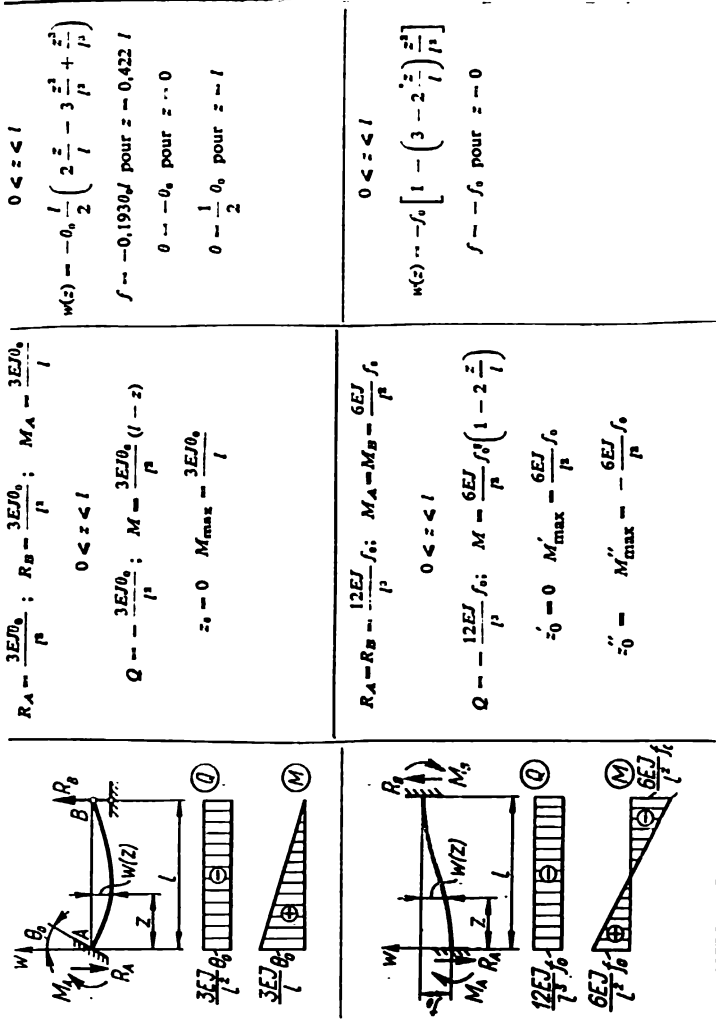 w
θ₀
A
B
R_B
M_A
R_A
w(z)
z
l
3EJ/l² θ₀
Q
⊖
3EJ/l θ₀
M
⊕
R_A = 3EJθ₀/l² ; R_B = 3EJθ₀/l² ; M_A = 3EJθ₀/l
0 < z < l
Q = − 3EJθ₀/l² ; M = 3EJθ₀/l² (l − z)
z₀ = 0 M_max = 3EJθ₀/l
0 < z < l
w(z) = −θ₀ l/2 (2 z/l − 3 z²/l² + z³/l³)
f = −0,193θ₀l pour z = 0,422 l
θ = −θ₀ pour z = 0
θ = 1/2 θ₀ pour z = l
w
f₀
R_B
M_B
M_A
R_A
w(z)
z
l
12EJ/l³ f₀
Q
⊖
6EJ/l² f₀
M
⊕
⊖
6EJ/l² f₀
R_A = R_B = 12EJ/l³ f₀; M_A = M_B = 6EJ/l² f₀
0 < z < l
Q = − 12EJ/l³ f₀; M = 6EJ/l² f₀ (1 − 2 z/l)
z′₀ = 0 M′_max = 6EJ/l² f₀
z″₀ = M″_max = − 6EJ/l² f₀
0 < z < l
w(z) = −f₀ [1 − (3 − 2 z/l) z²/l²]
f = −f₀ pour z = 0